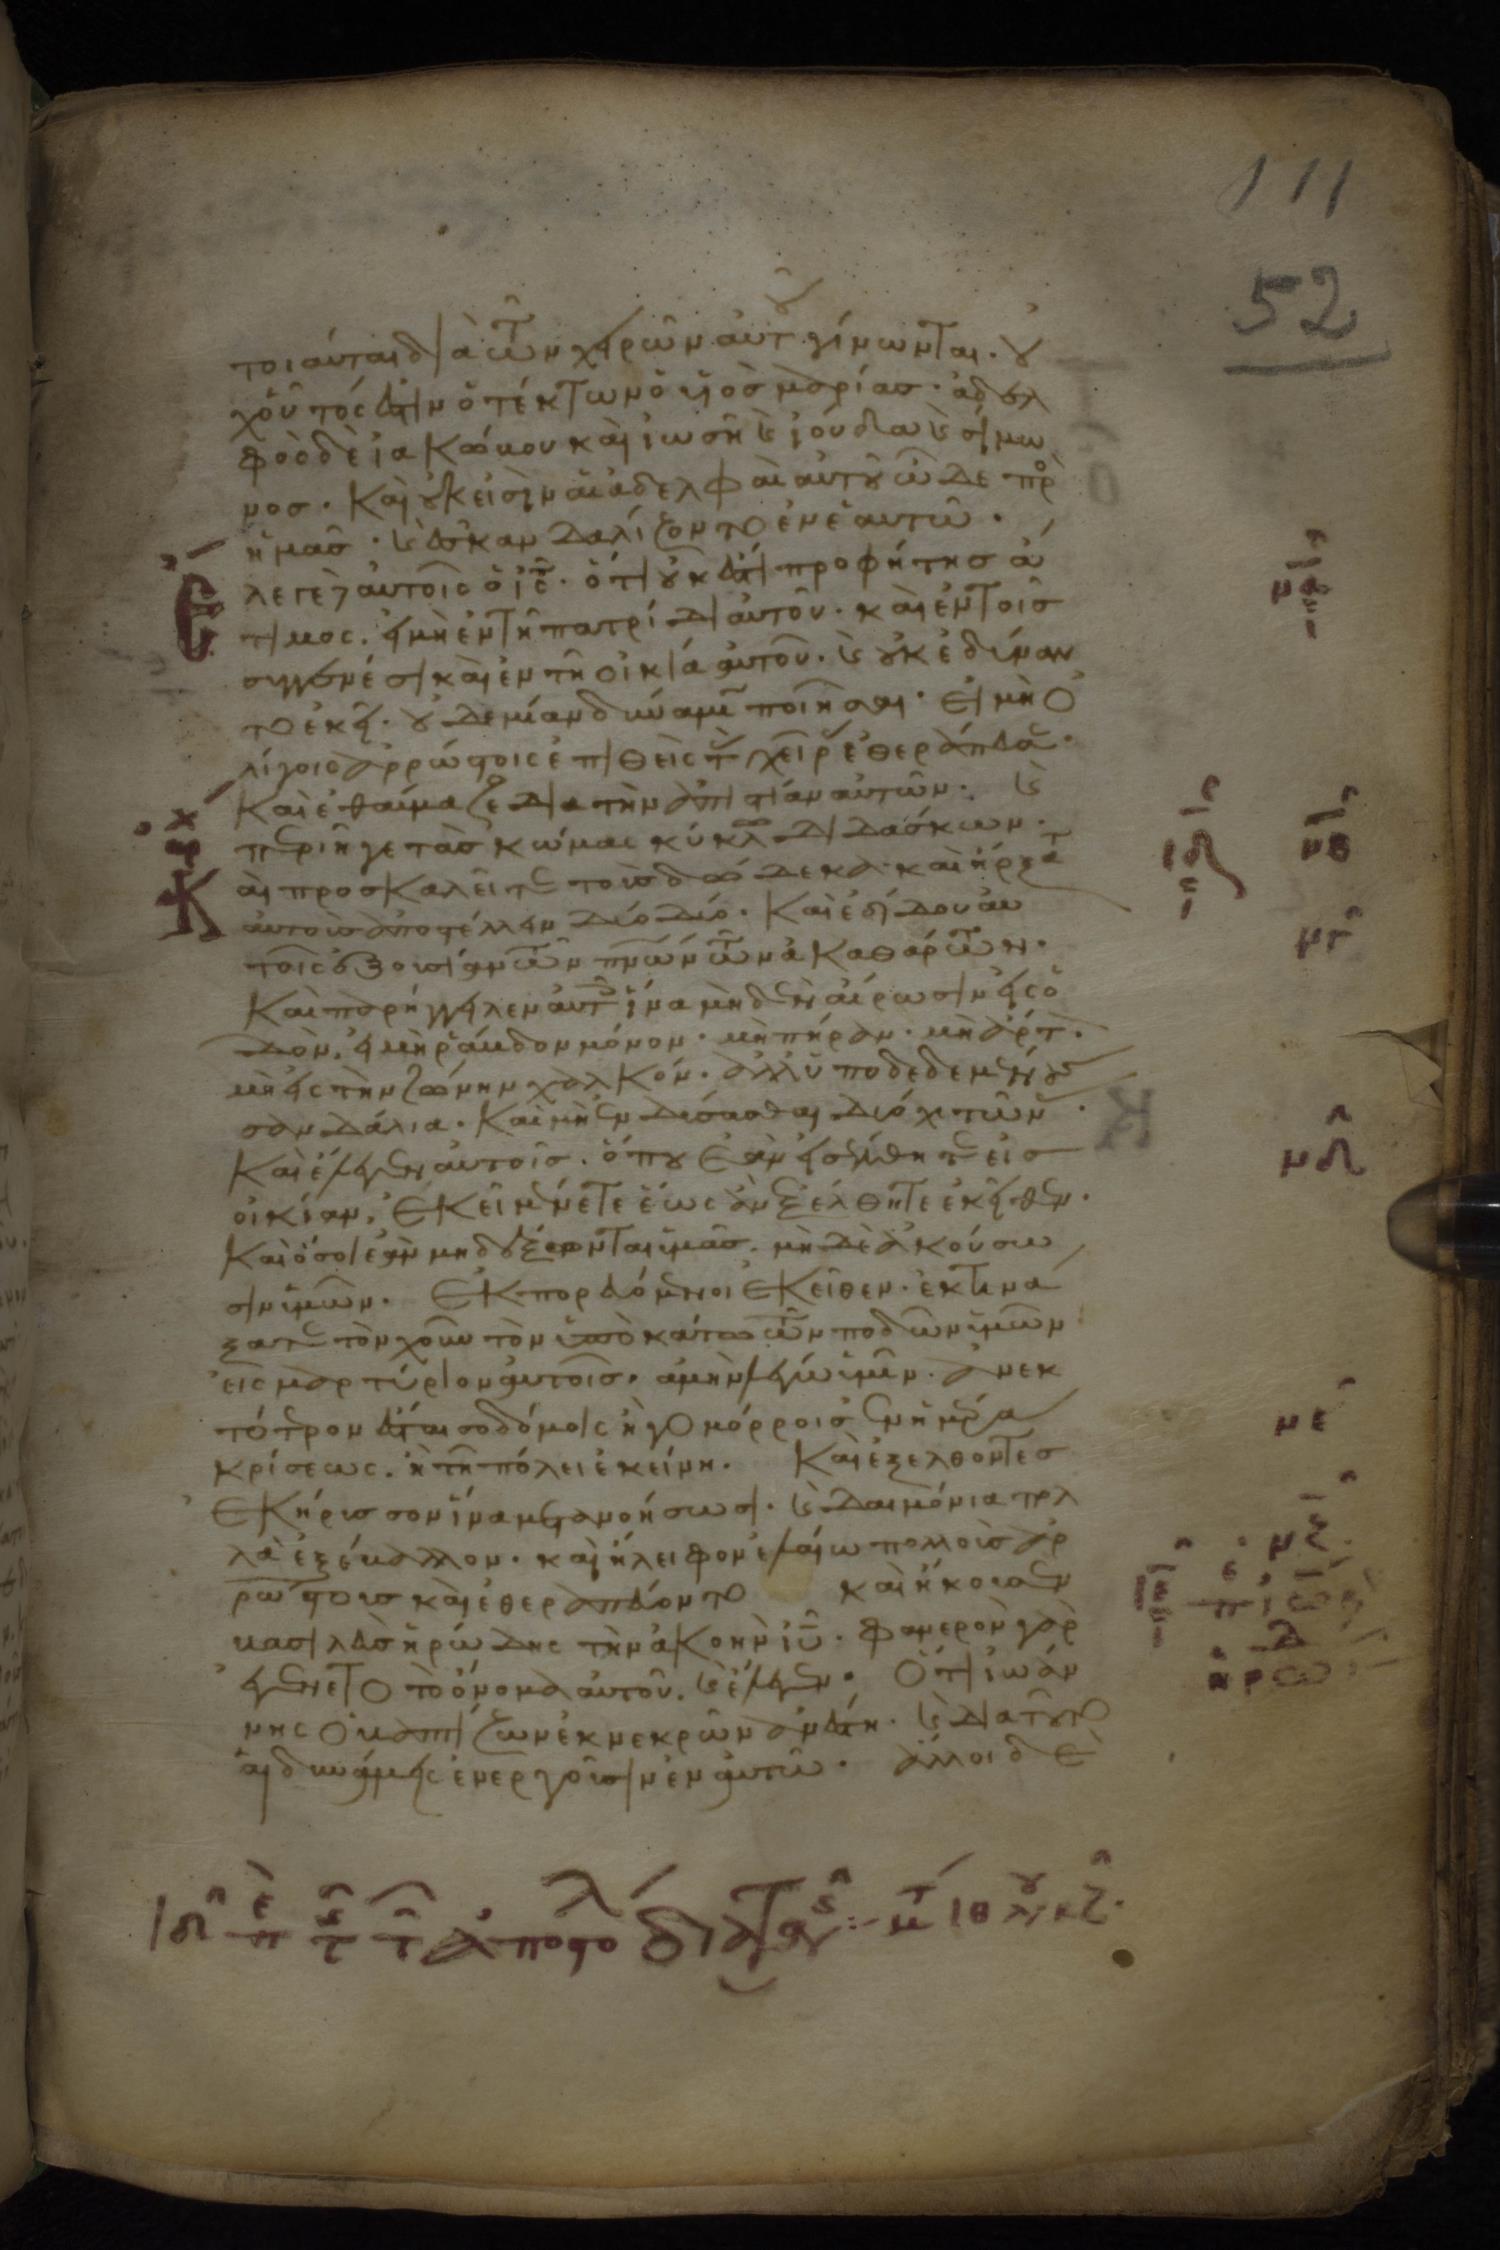 111
52
τοιαύται διὰ τῶν χειρῶν αὐτοῦ γίνωνται. οὐ
χ οὗτός ἐστιν ὁ τέκτων ὁ υἱὸς μαρίας. ἀδελ
φὸς δὲ ἰακώβου καὶ ἰωσὴ καὶ ἰούδα καὶ σίμω
νος. Καὶ οὐκ εἰσὶν αἱ ἀδελφαὶ αὐτοῦ ὧδε πρὸ
ἡμᾶς. καὶ ἐσκανδαλίζοντο ἐν ἑαυτῶ.
Ἔλεγε δ αὐτοῖς ὁ ις. ὅτι οὐκ ἔστι προφήτης ἄ
τιμος. εἰ μὴ ἐν τῆ πατρίδι αὐτοῦ. καὶ ἐν τοῖς
συγγενέσι καὶ ἐν τῆ οἰκία αὐτοῦ. καὶ οὐκ ἐδύναν
το ἐκεῖ. οὐδεμίαν δύναμιν ποιῆσαι. Εἰ μὴ ὀ
λίγοις ἀρρώστοις ἐπιθεὶς τὰς χεῖρας ἐθεράπευσε.
Καὶ ἐθαύμαζε διὰ τὴν ἀπιστίαν αὐτῶν. καὶ
περιῆγε τὰς κώμας κύκλω διδάσκων.
Καὶ προσκαλεῖται τοὺς δώδεκα. καὶ ἤρξατ
αὐτοὺς ἀποστέλλειν δύο δύο. Καὶ ἐδίδου αὐ
τοῖς ἐξουσίαν τῶν πνων τῶν ἀκαθάρτων.
Καὶ παρήγγειλεν αὐτοῖς ἵνα μηδὲν αἴρωσιν εἰς ὁ
δὸν. εἰ μὴ ῥάβδον μόνον. μὴ πήραν. μὴ ἄρτον.
μὴ εἰς τὴν ζώνην χαλκόν. ἀλλ ὑποδεδεμένους
σανδάλια. Καὶ μὴ ἐνδύσασθαι δύο χιτῶνας.
Καὶ ἔλεγεν αὐτοῖς. ὅπου ἐὰν εἰσέλθητε εἰς
οἰκίαν, ἐκεῖ μένετε ἕως ἂν ἐξέλθητε ἐκεῖθεν.
Καὶ ὅσοι ἐὰν μὴ δέξωνται ὑμᾶς. μὴ δὲ ἀκούσω
σιν ὑμῶν. ἐκπορευόμενοι ἐκεῖθεν. ἐκτινά
ξατε τὸν χοῦν τὸν ὑποκάτω τῶν ποδῶν ὑμῶν
εἰς μαρτύριον αὐτοῖς. ἀμὴν λέγω ὑμῖν. ἀνεκ
τότερον ἔσται σοδόμοις ἢ γομόρροις ἐν ἡμέρα
κρίσεως. ἢ τῆ πόλει ἐκείνη. Καὶ ἐξελθόντες
ἐκήρυσσον ἵνα μετανοήσωσι. καὶ δαιμόνια πολ
λὰ ἐξέβαλλον. καὶ ἤλειφον ἐλαίω πολλοὺς ἀρ
ρώστους καὶ ἐθεραπεύοντο καὶ ἤκουσεν
βασιλεὺς ἡρώδης τὴν ἀκοὴν ιυ. φανερὸν γὰρ
ἐγένετο τὸ ὄνομα αὐτοῦ. καὶ ἔλεγεν. Ὅτι ἰωάν
νης ὁ βαπτίζων ἐκ νεκρῶν ἀνέστη. καὶ διὰ τοῦτο
αἱ δυνάμεις ἐνεργοῦσιν ἐν αὐτῶ. ἄλλοι δὲ
μβ
μγ
μδ
με